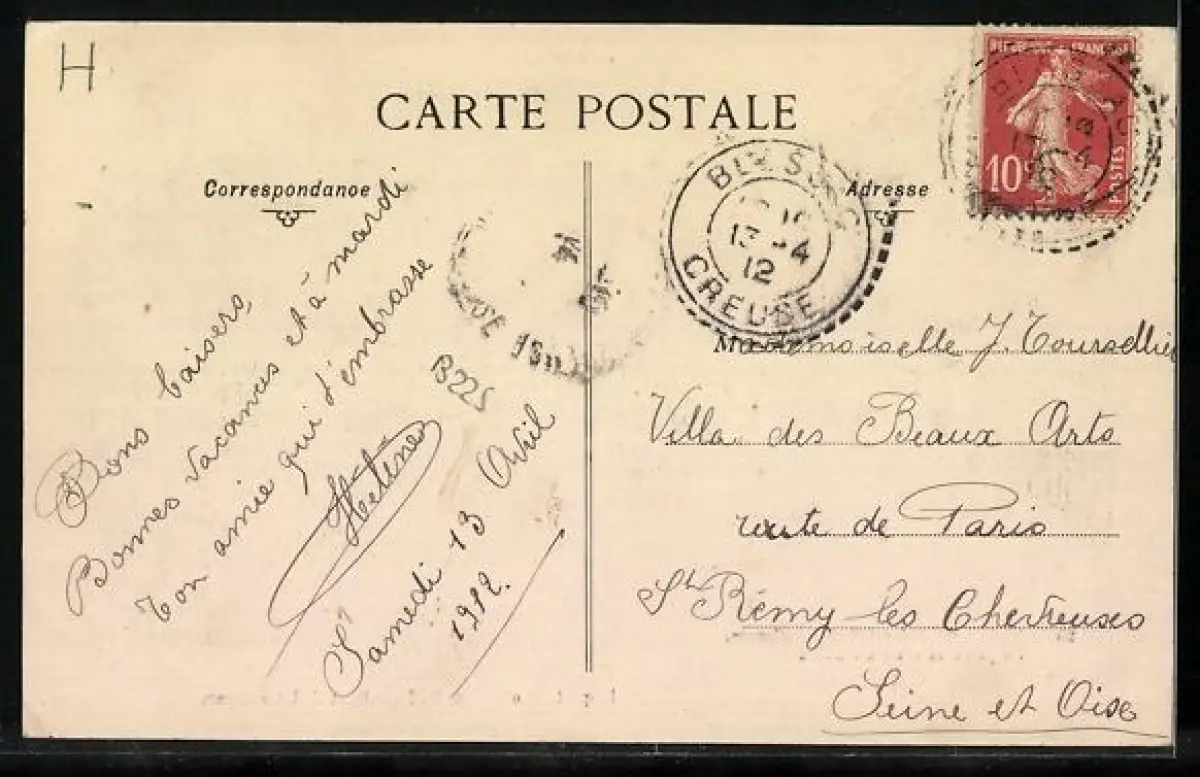 H
CARTE POSTALE
Correspondance
Bons baisers
Bonnes vacances et à mardi
Ton amie qui t'embrasse
Hélène
B225
Samedi 13 Avril
1912.
CREUSE
13 4
12
Adresse
RÉPUBLIQUE FRANÇAISE
10c
POSTES
Mademoiselle J. Toursellier
Villa des Beaux Arts
route de Paris
St Rémy les Chevreuses
Seine et Oise